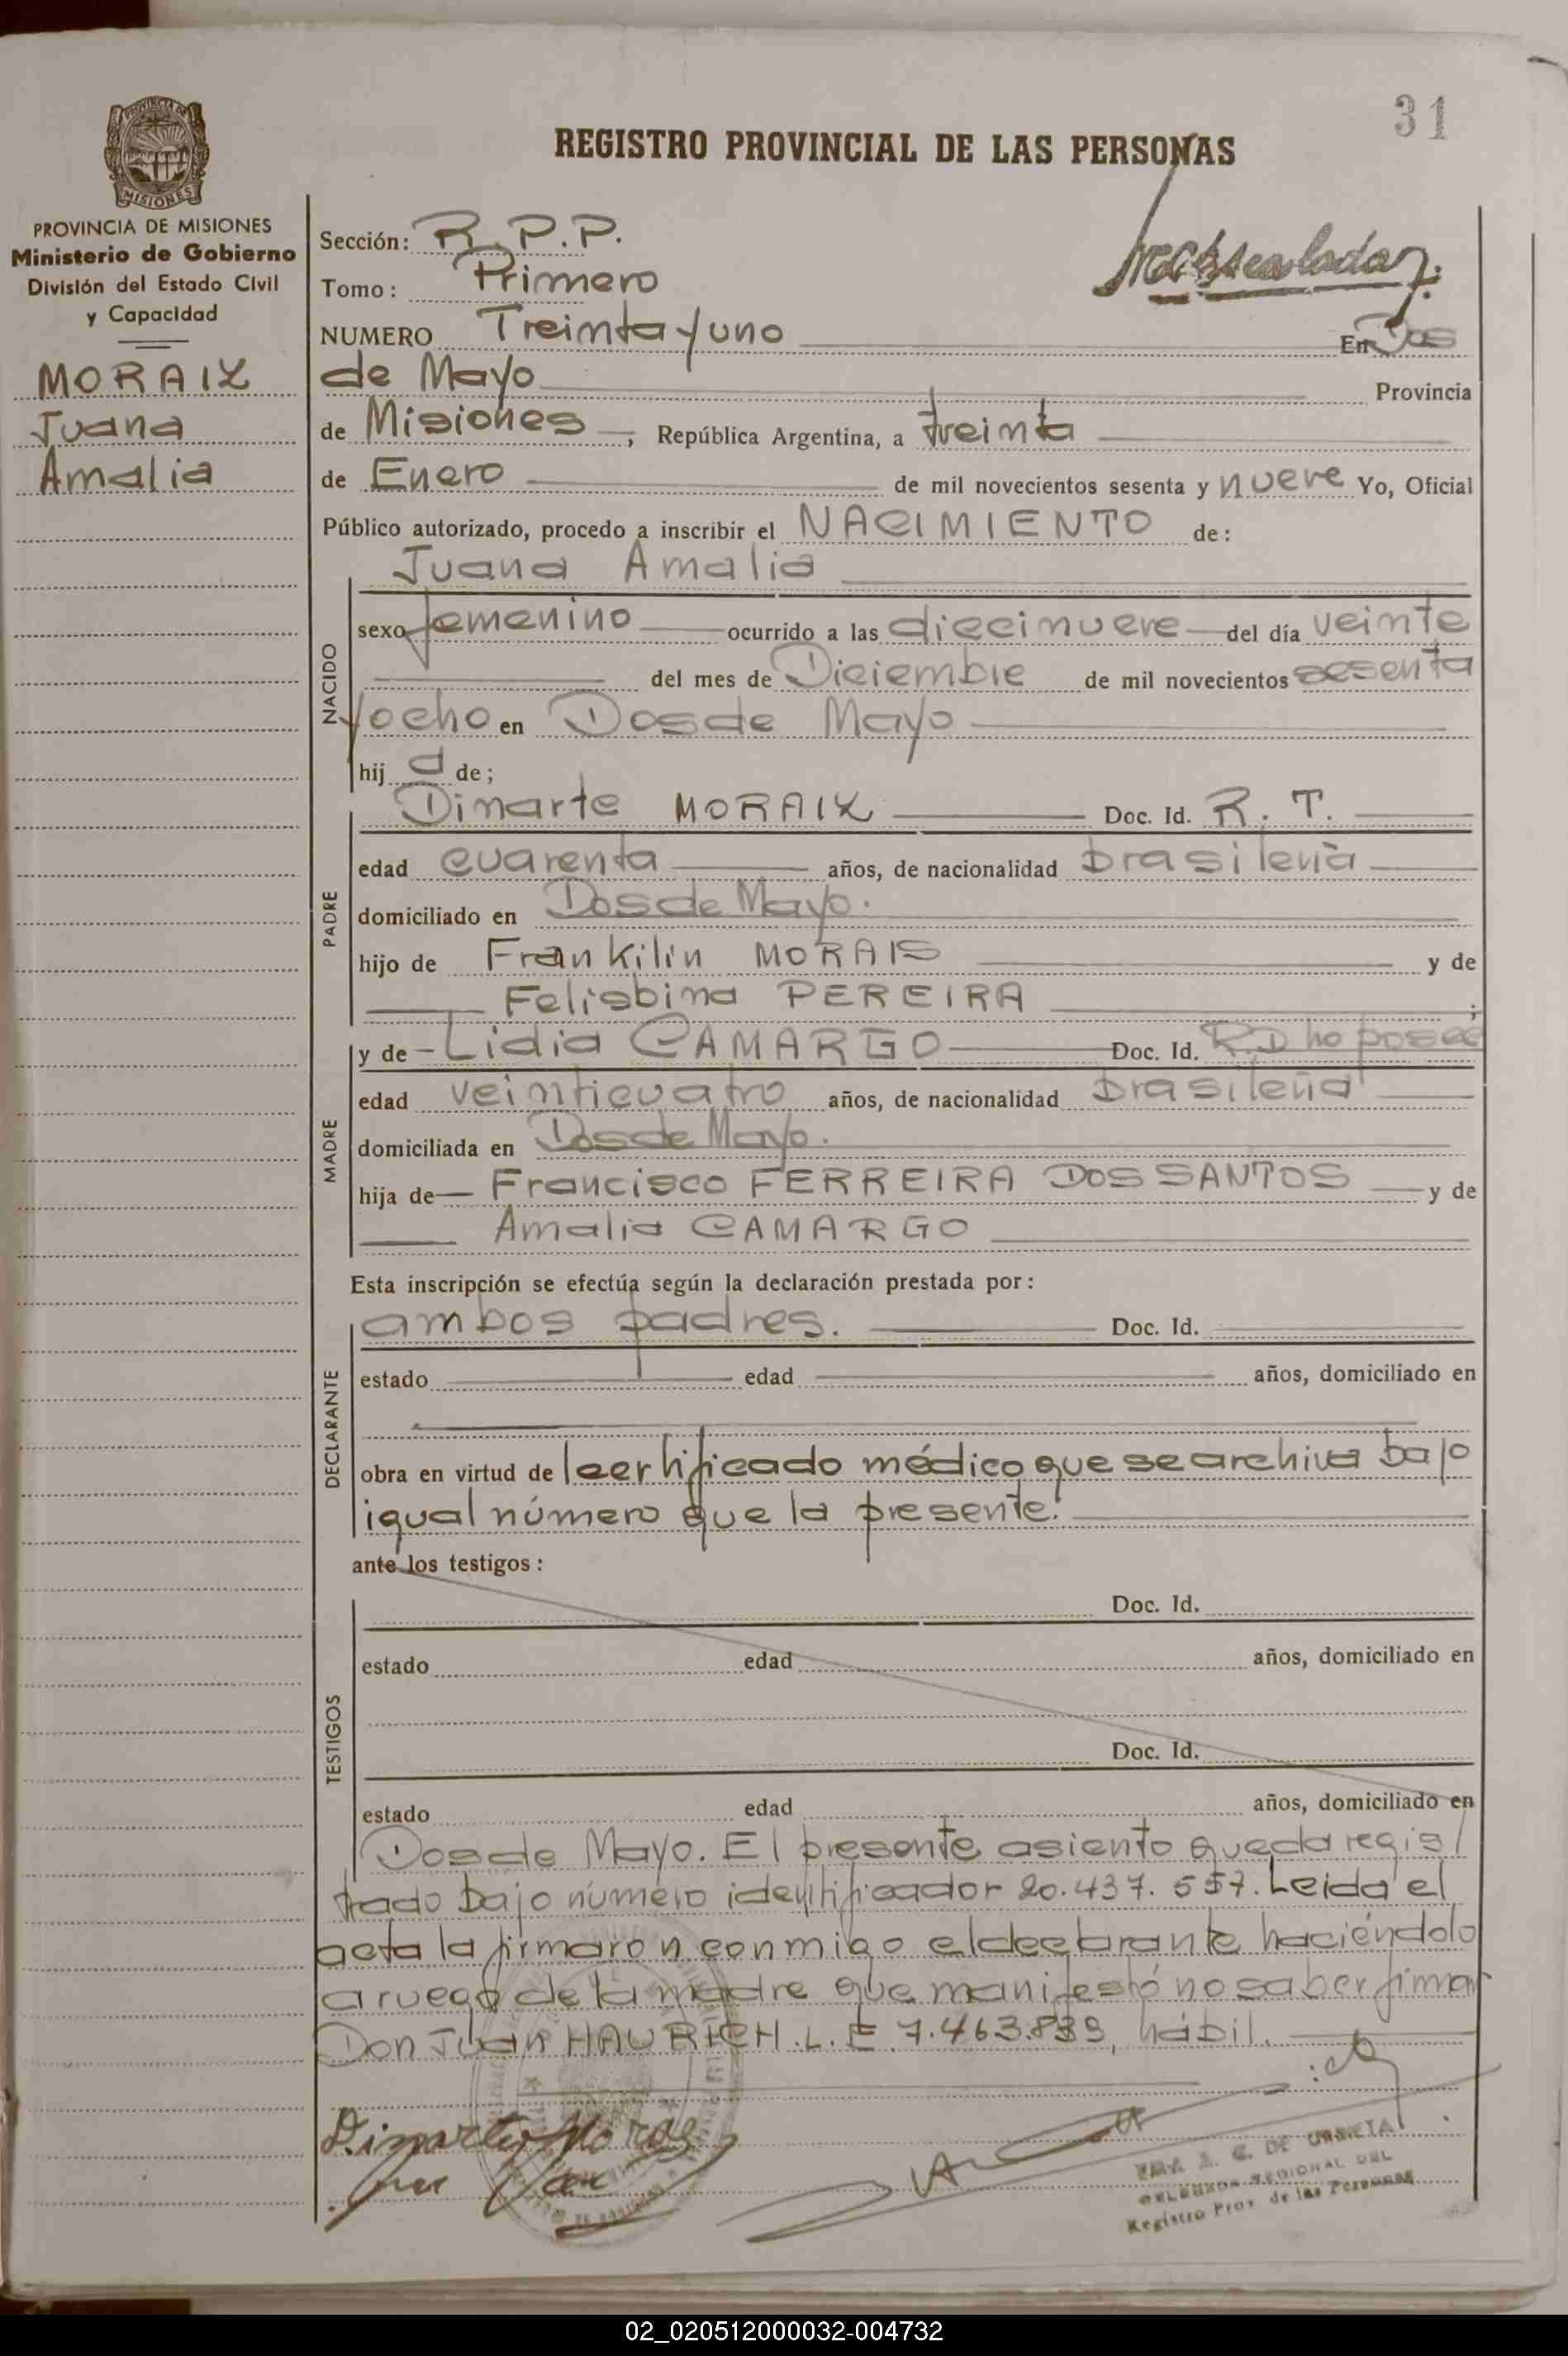 31
REGISTRO PROVINCIAL DE LAS PERSONAS
PROVINCIA DE MISIONES
Ministerio de Gobierno
División del Estado Civil
y Capacidad
MORAIX
Juana
Amalia
Sección: R.P.P.
Tomo: Primero
NUMERO Treinta y uno En Dos
de Mayo Provincia
de Misiones, República Argentina, a treinta
de Enero de mil novecientos sesenta y nueve Yo, Oficial
Público autorizado, procedo a inscribir el NACIMIENTO de:
Juana Amalia
NACIDO
sexo femenino ocurrido a las diecinueve del día veinte
del mes de Diciembre de mil novecientos sesenta
y ocho en Dos de Mayo
hij a de;
Dinarte MORAIX Doc. Id. R. T.
PADRE
edad cuarenta años, de nacionalidad brasileña
domiciliado en Dos de Mayo.
hijo de Frankilin MORAIS y de
Felisbina PEREIRA ;
y de Lidia CAMARGO Doc. Id. R.D no posee
MADRE
edad veinticuatro años, de nacionalidad brasileña
domiciliada en Dos de Mayo.
hija de Francisco FERREIRA DOS SANTOS y de
Amalia CAMARGO
Esta inscripción se efectúa según la declaración prestada por:
ambos padres. Doc. Id.
DECLARANTE
estado edad años, domiciliado en
obra en virtud de certificado médico que se archiva bajo
igual número que la presente.
ante los testigos:
Doc. Id.
TESTIGOS
estado edad años, domiciliado en
Doc. Id.
estado edad años, domiciliado en
Dos de Mayo. El presente asiento queda regis/
trado bajo número identificador 20.437.557. Leida el
acta la firmaron conmigo el declarante haciéndolo
a ruego de la madre que manifestó no saber firmar
Don Juan HAURICH. L.E 7.463.839, hábil.
Dinarte Moraes
DE URRETIA
REGIONAL DEL
Registro Prov. de las Personas
02_020512000032-004732